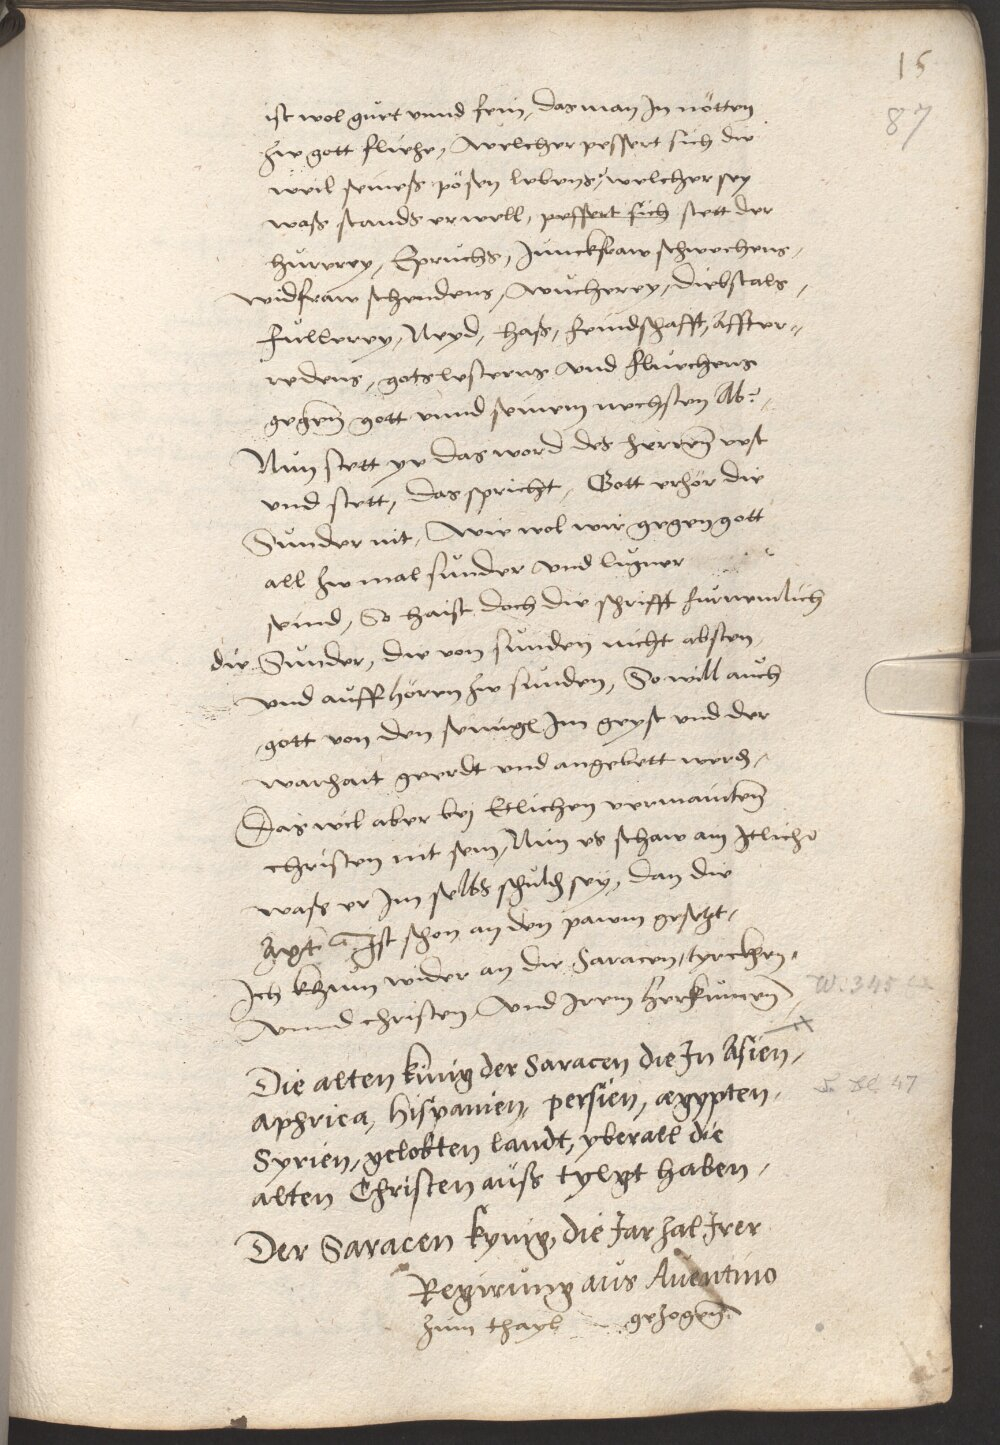 15
87
ist wol guet unnd fein, das man In nötten
zw gott fliehe, Welcher pessert sich die
weil seines pösen lebens, welcher sey
wass stands er well, pessert sich stett der
Huererey, Epruchs, Junckfraw schwechens,
widfraw schendens, Wucherey, Diebstals,
füllerey, Neyd, Hass, feindschafft, Affter„
redens, gotslesterens Und fluechens
gegen gott unnd seinem nechsten Ab?,
Nun stett ye das word des Herren vest
und stett, das spricht, Gott erhör die
Sünder nit, Wie wol wir gegen gott
all zw mal sünder Und lugner
seind, So haist doch die schrifft furnemlich
die Sünder, die von sünden nicht absten
und auffhören zw sünden, So will auch
gott von den seinigen Im geyst und der
warhait geerdt und angebett werden,
Das wil aber bej Etlichen vermainten
christen nit sein, Nun es schaw ain Itlicher
wass er Im selbs schuldig sey, dan die
Axt Ist schon an den pawm gesetzt,
Ich khum wider an die Saracen, tyrckhen,
Unnd christen Und Irem Herkumen
W. 345
Die alten künig der Saracen die In Asien,
Aphrica, Hispanien, persien, ægypten,
S. Bl 47
Syrien, gelobten landt, yberall die
alten Christen auss tylgt haben,
Der Saracen kynig, die Jar zal Irer
Regirung aus Auentino
zum thayl gezogen